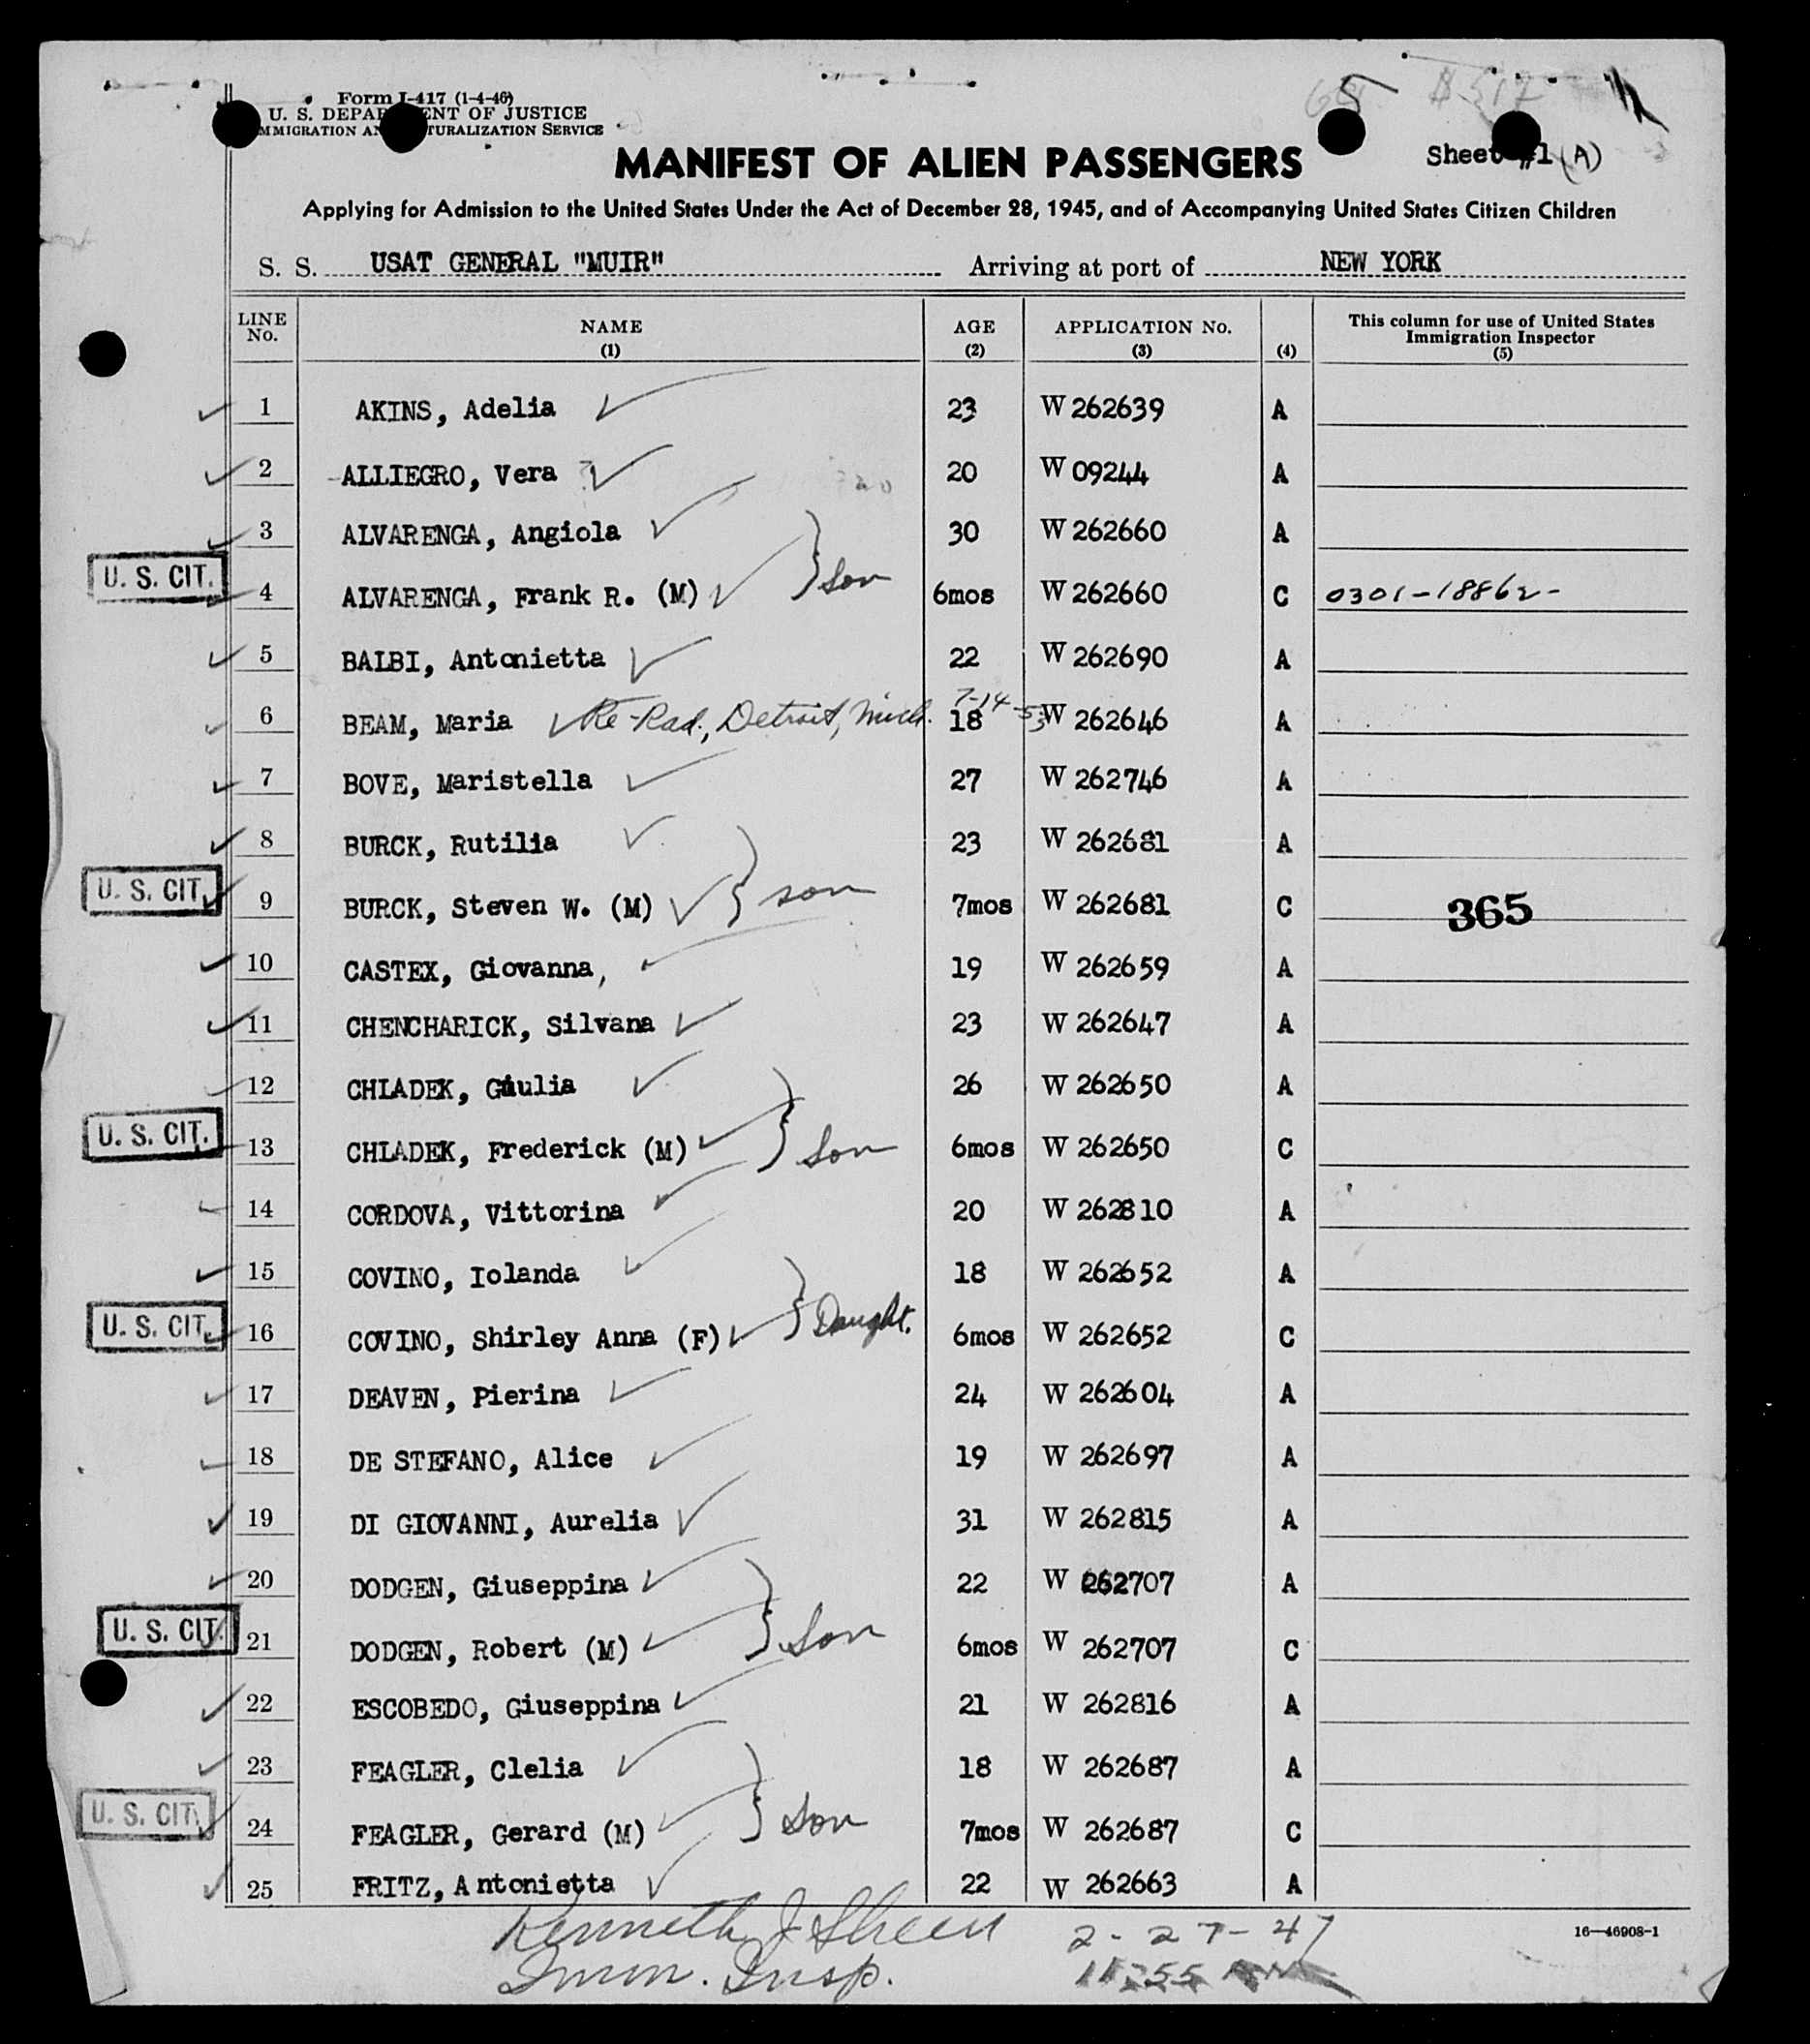 Form I-417 (1-4-46)
U. S. DEPARTMENT OF JUSTICE
IMMIGRATION AND NATURALIZATION SERVICE
5
MANIFEST OF ALIEN PASSENGERS
Sheet #1 (A)
Applying for Admission to the United States Under the Act of December 28, 1945, and of Accompanying United States Citizen Children
S. S. USAT GENERAL "MUIR" Arriving at port of NEW YORK
LINE No. NAME (1) AGE (2) APPLICATION No. (3) (4) This column for use of United States Immigration Inspector (5)
1 AKINS, Adelia 23 W 262639 A
2 ALLIEGRO, Vera 20 W 09244 A
3 ALVARENGA, Angiola 30 W 262660 A
U. S. CIT. 4 ALVARENGA, Frank R. (M) Son 6mos W 262660 C 0301-18862-
5 BALBI, Antonietta 22 W 262690 A
6 BEAM, Maria Re-Rad., Detroit, Mich. 7-14-53 18 W 262646 A
7 BOVE, Maristella 27 W 262746 A
8 BURCK, Rutilia 23 W 262681 A
U. S. CIT. 9 BURCK, Steven W. (M) son 7mos W 262681 C 365
10 CASTEX, Giovanna, 19 W 262659 A
11 CHENCHARICK, Silvana 23 W 262647 A
12 CHLADEK, Giulia 26 W 262650 A
U. S. CIT. 13 CHLADEK, Frederick (M) Son 6mos W 262650 C
14 CORDOVA, Vittorina 20 W 262810 A
15 COVINO, Iolanda 18 W 262652 A
U. S. CIT. 16 COVINO, Shirley Anna (F) Daught. 6mos W 262652 C
17 DEAVEN, Pierina 24 W 262604 A
18 DE STEFANO, Alice 19 W 262697 A
19 DI GIOVANNI, Aurelia 31 W 262815 A
20 DODGEN, Giuseppina 22 W 262707 A
U. S. CIT. 21 DODGEN, Robert (M) Son 6mos W 262707 C
22 ESCOBEDO, Giuseppina 21 W 262816 A
23 FEAGLER, Clelia 18 W 262687 A
U. S. CIT. 24 FEAGLER, Gerard (M) Son 7mos W 262687 C
25 FRITZ, Antonietta 22 W 262663 A
Kenneth J Sheen 2-27-47
Imm. Insp.
16—46908-1